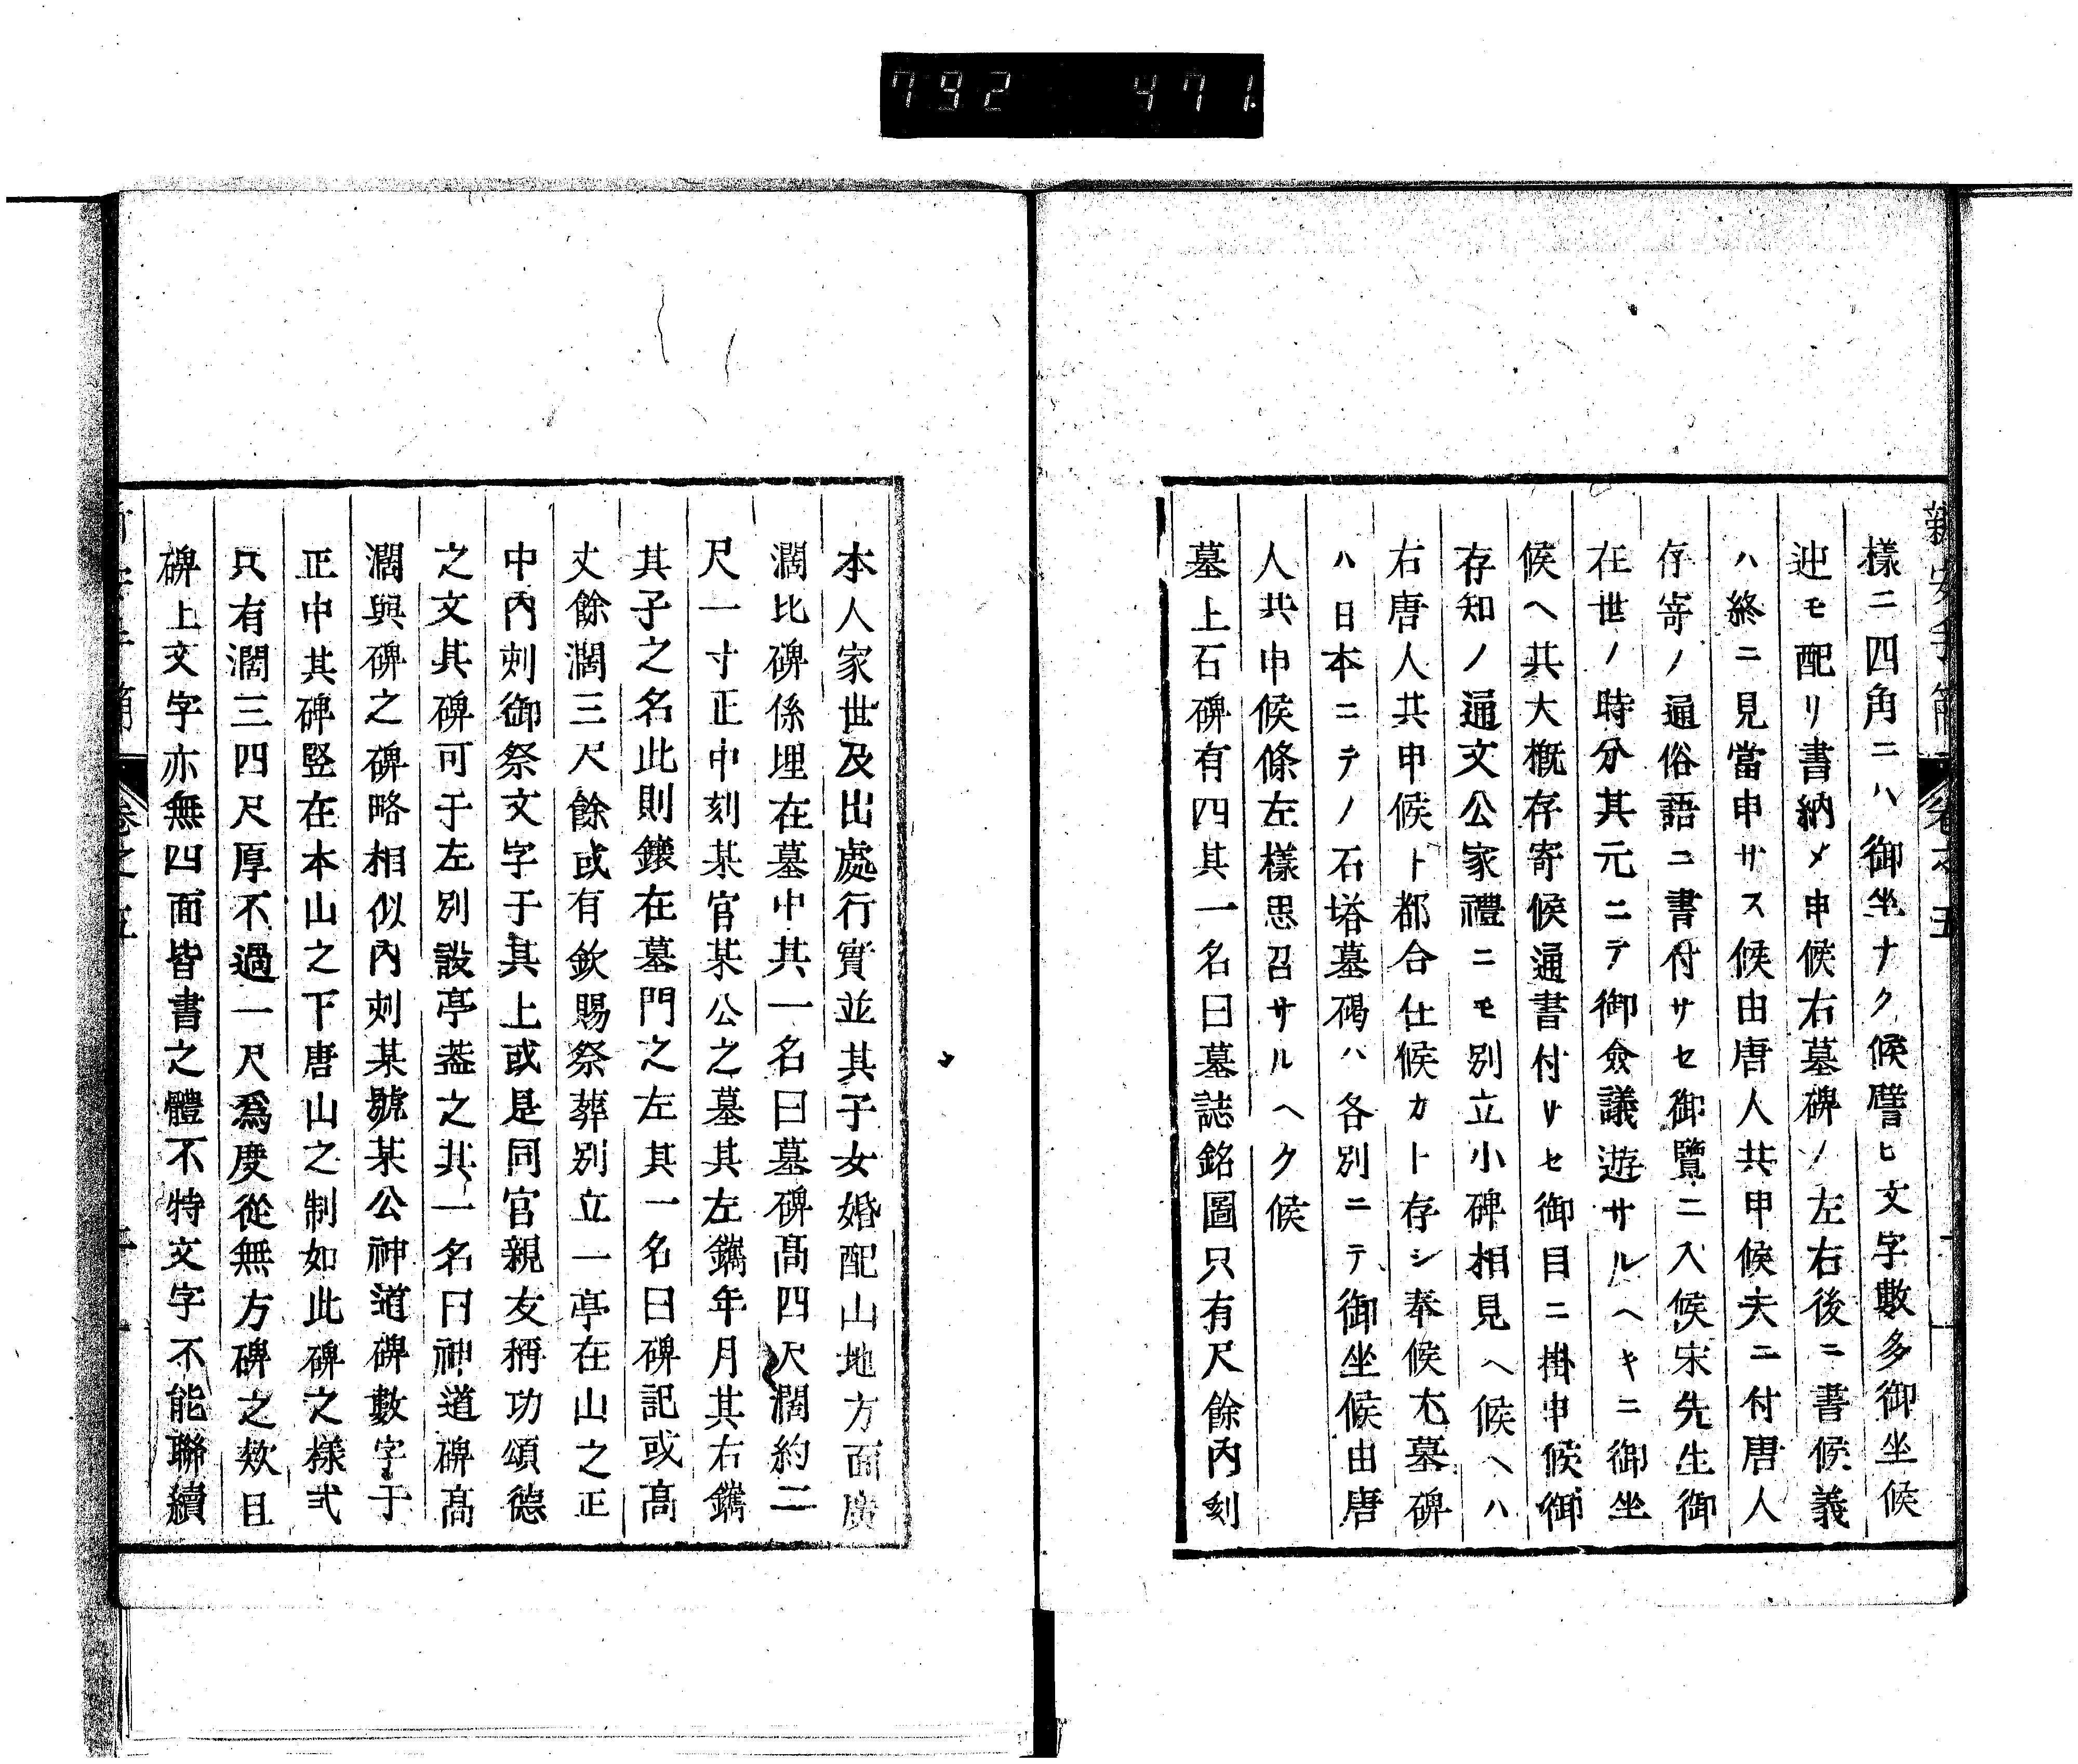 792 471
新安手簡 卷之五
樣ニ四角ニハ御坐ナク候譬ヒ文字數多御坐候
迚モ配リ書納メ申候右墓碑ノ左右後ニ書候義
ハ終ニ見當申サス候由唐人共申候夫ニ付唐人
存寄ノ通俗語ニ書付サセ御覽ニ入候宋先生御
在世ノ時分其元ニテ御僉議遊サルヘキニ御坐
候ヘ共大概存寄候通書付サセ御目ニ掛申候御
存知ノ通文公家禮ニモ別立小碑相見ヘ候ヘハ
右唐人共申候ト都合仕候カト存シ奉候尤墓碑
ハ日本ニテノ石塔墓碣ハ各別ニテ御坐候由唐
人共申候條左樣思召サルヘク候
墓上石碑有四其一名曰墓誌銘圖只有尺餘内刻
本人家世及出處行實並其子女婚配山地方面廣
濶比碑係埋在墓中其一名曰墓碑髙四尺濶約二
尺一寸正中刻某官某公之墓其左鐫年月其右鐫
其子之名此則鑲在墓門之左其一名曰碑記或髙
丈餘濶三尺餘或有欽賜祭葬別立一亭在山之正
中内刺御祭文字于其上或是同官親友稱功頌德
之文其碑可于左別設亭葢之其一名曰神道碑髙
濶與碑之碑略相似内刺某號某公神道碑數字于
正中其碑竪在本山之下唐山之制如此碑之樣式
只有濶三四尺厚不過一尺爲度從無方碑之欵且
碑上文字亦無四面皆書之體不特文字不能聯續
卷之五